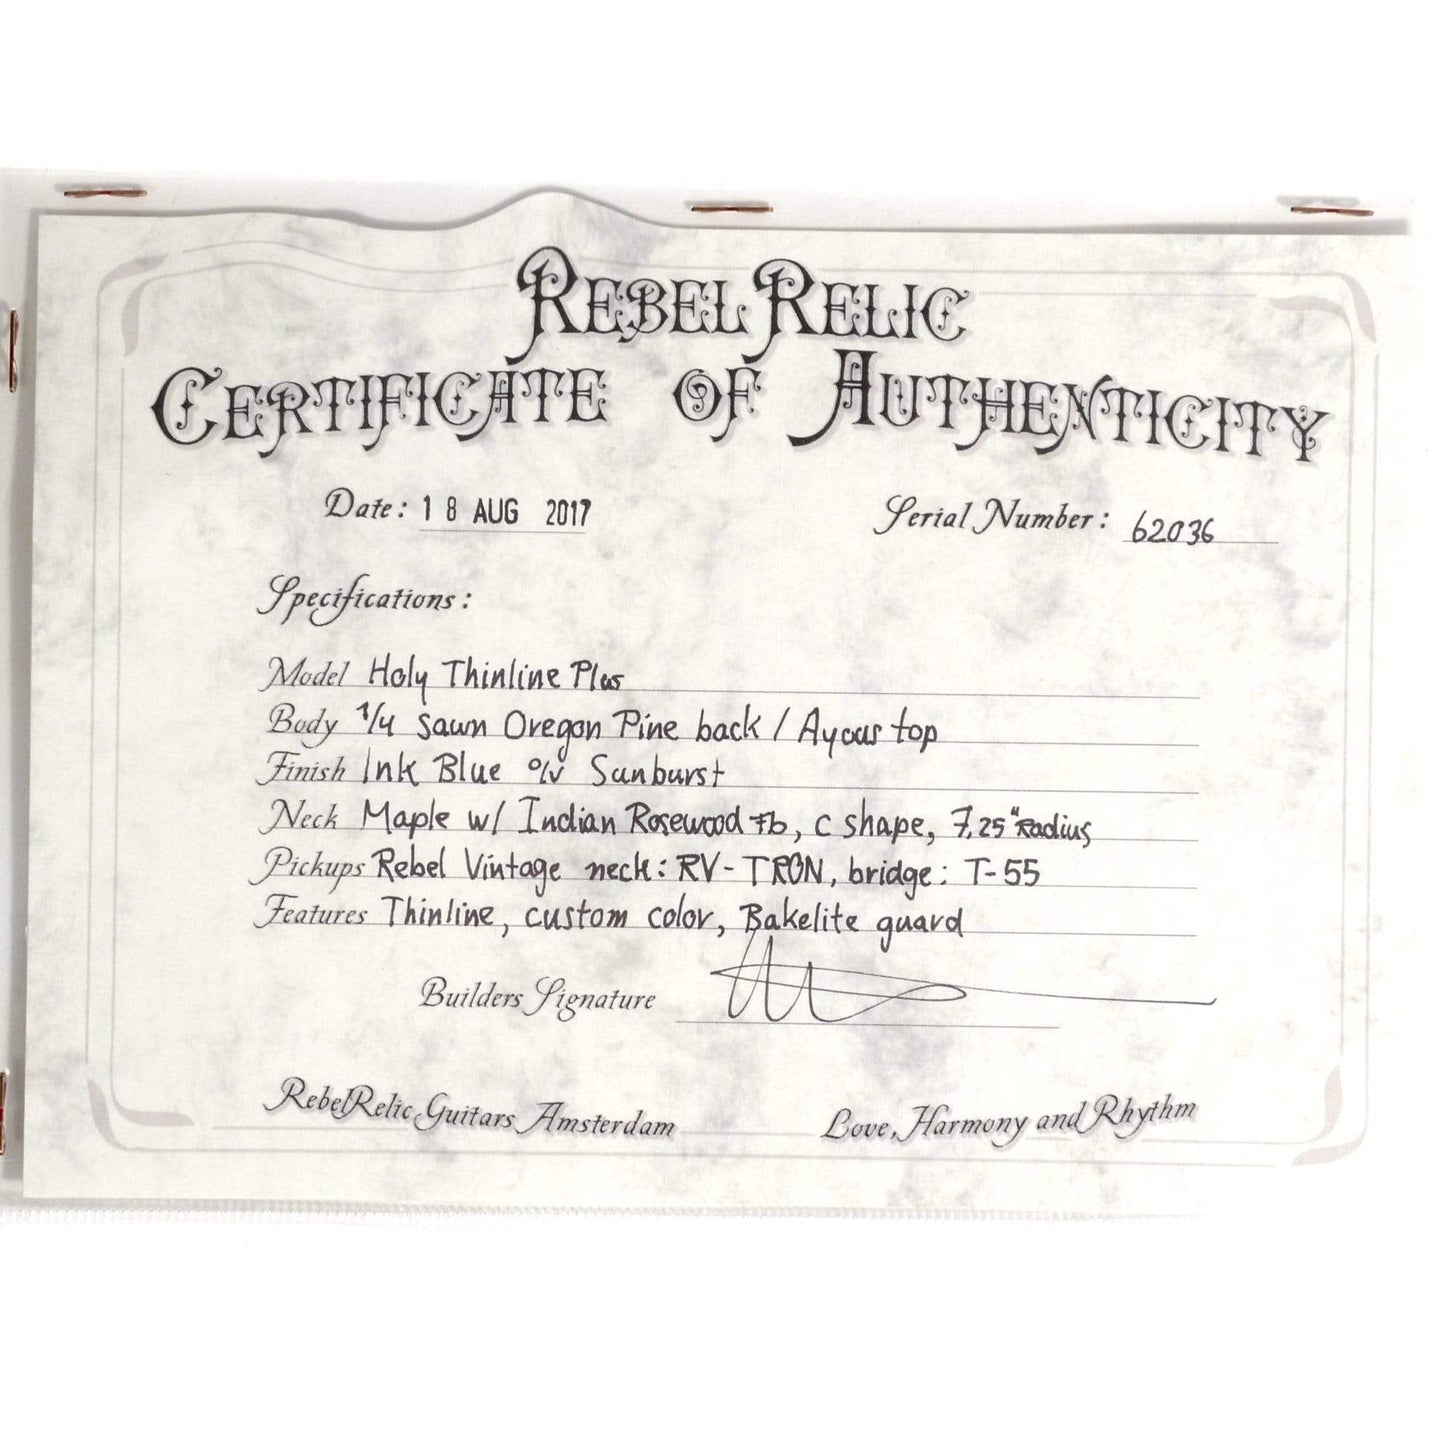 REBEL RELIC
CERTIFICATE OF AUTHENTICITY
Date: 18 AUG 2017 Serial Number: 62036
Specifications:
Model Holy Thinline Plus
Body 1/4 sawn Oregon Pine back / Ayous top
Finish Ink Blue o/v Sunburst
Neck Maple w/ Indian Rosewood fb, C shape, 7,25" Radius
Pickups Rebel Vintage neck: RV-TRON, bridge: T-55
Features Thinline, custom color, Bakelite guard
Builders Signature
RebelRelic Guitars Amsterdam Love, Harmony and Rhythm